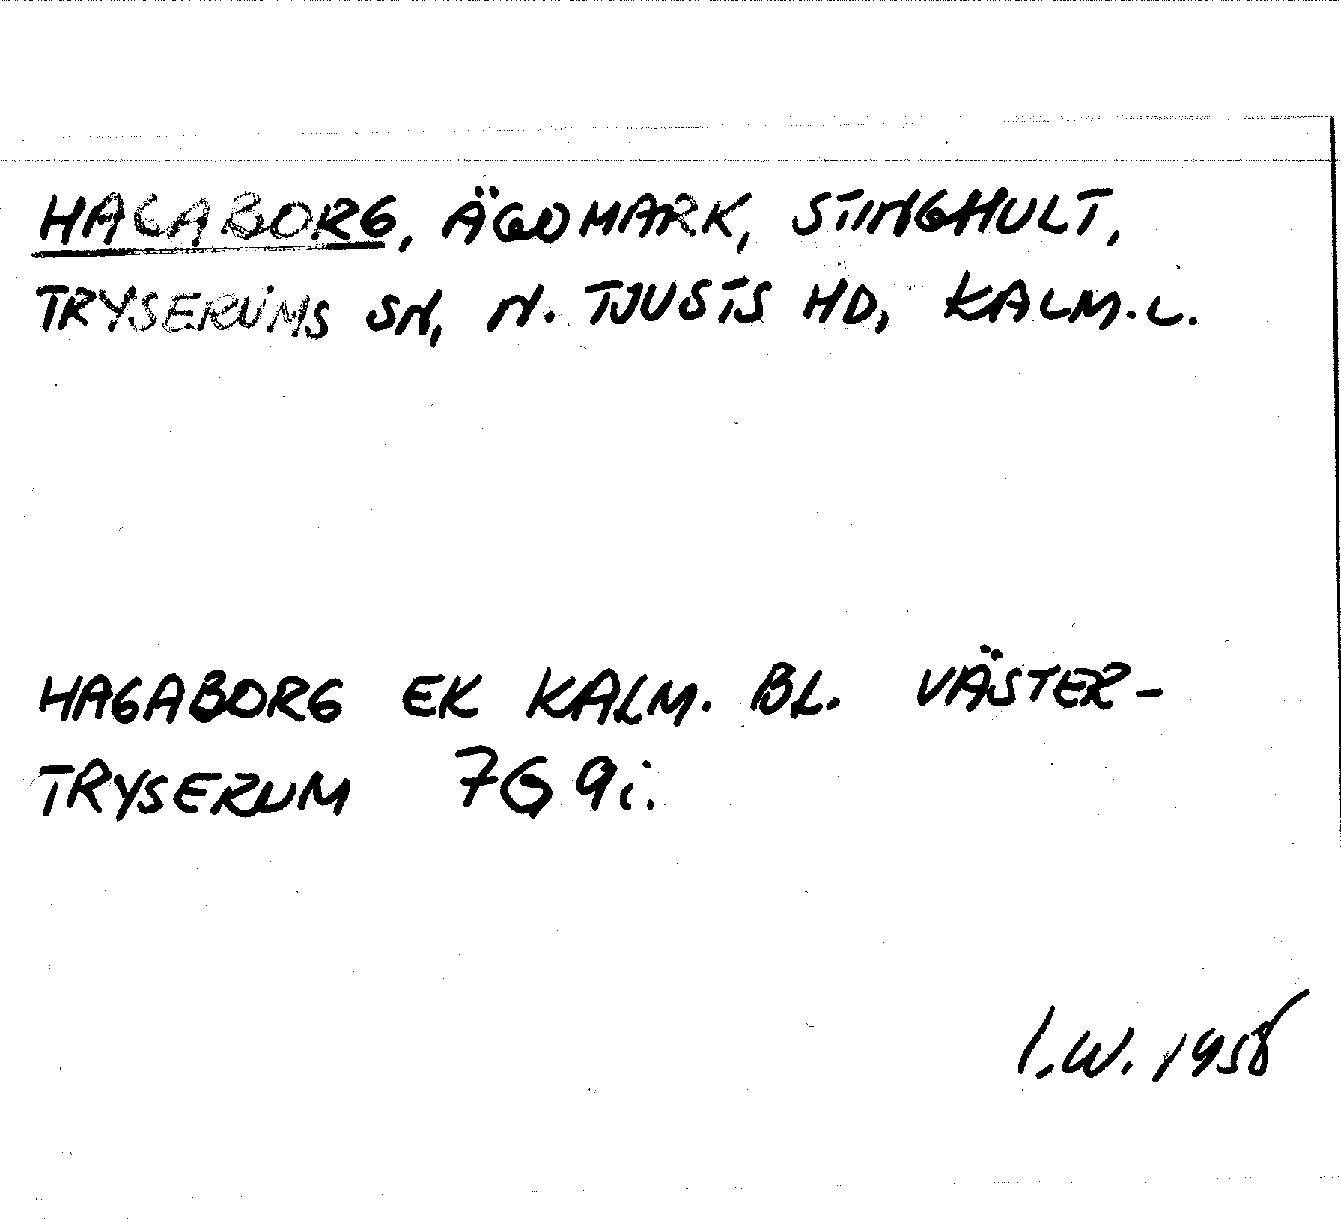 HAGABORG, ÄGOMARK, STINGHULT,
TRYSERUMS SN, N. TJUSTS HD, KALM.L.
HAGABORG EK KALM. BL. VÄSTER-
TRYSERUM 7G 9i.
I.W. 1958